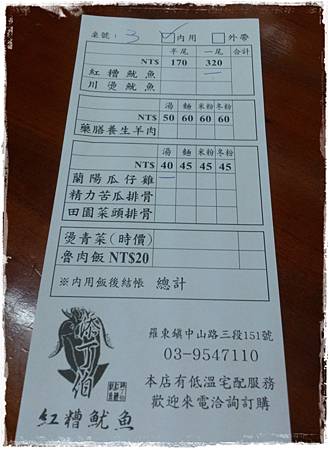 桌號：3 ☑內用 □外帶
半尾 一尾 合計
NT$ 170 320
紅糟魷魚
川燙魷魚
湯 麵 米粉 冬粉
NT$ 50 60 60 60
藥膳養生羊肉
湯 麵 米粉 冬粉
NT$ 40 45 45 45
蘭陽瓜仔雞
精力苦瓜排骨
田園菜頭排骨
燙青菜(時價)
魯肉飯 NT$20
※內用飯後結帳 總計
添丁伯
紅糟魷魚
羅東鎮中山路三段151號
03-9547110
本店有低溫宅配服務
歡迎來電洽詢訂購